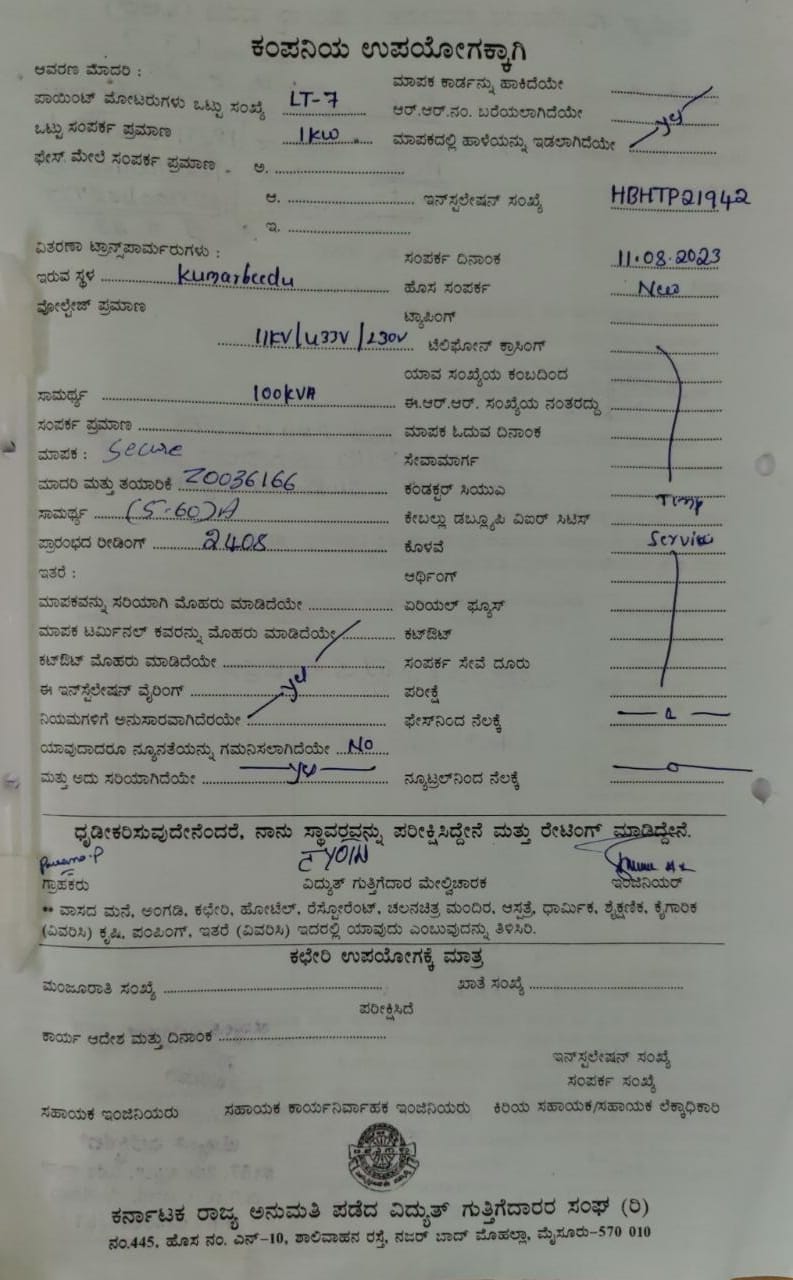 ಕಂಪನಿಯ ಉಪಯೋಗಕ್ಕಾಗಿ
ಆವರಣ ಮಾದರಿ :
ಮಾಪಕ ಕಾರ್ಡನ್ನು ಹಾಕಿದೆಯೇ
ಪಾಯಿಂಟ್ ಮೋಟರುಗಳು ಒಟ್ಟು ಸಂಖ್ಯೆ LT-7
ಆರ್.ಆರ್.ನಂ. ಬರೆಯಲಾಗಿದೆಯೇ
ಒಟ್ಟು ಸಂಪರ್ಕ ಪ್ರಮಾಣ 1KW
ಮಾಪಕದಲ್ಲಿ ಹಾಳೆಯನ್ನು ಇಡಲಾಗಿದೆಯೇ yes
ಫೇಸ್ ಮೇಲೆ ಸಂಪರ್ಕ ಪ್ರಮಾಣ . ಅ.
ಆ. ಇನ್‌ಸ್ಟಲೇಷನ್ ಸಂಖ್ಯೆ HBHTP21942
ಇ.
ವಿತರಣಾ ಟ್ರಾನ್ಸ್‌ಪಾರ್ಮರುಗಳು :
ಸಂಪರ್ಕ ದಿನಾಂಕ 11.08.2023
ಇರುವ ಸ್ಥಳ Kumarbeedu
ಹೊಸ ಸಂಪರ್ಕ New
ವೋಲ್ಟೇಜ್ ಪ್ರಮಾಣ
ಟ್ಯಾಪಿಂಗ್
11KV/433V/230V
ಟೆಲಿಫೋನ್ ಕ್ರಾಸಿಂಗ್
ಯಾವ ಸಂಖ್ಯೆಯ ಕಂಬದಿಂದ
ಸಾಮರ್ಥ್ಯ 100KVA
ಈ.ಆರ್.ಆರ್. ಸಂಖ್ಯೆಯ ನಂತರದ್ದು
ಸಂಪರ್ಕ ಪ್ರಮಾಣ
ಮಾಪಕ ಓದುವ ದಿನಾಂಕ
ಮಾಪಕ : Secure
ಸೇವಾಮಾರ್ಗ
ಮಾದರಿ ಮತ್ತು ತಯಾರಿಕೆ 20036166
ಕಂಡಕ್ಟರ್ ಸಿಯುಎ
ಸಾಮರ್ಥ್ಯ (5-60)A
ಕೇಬಲ್ಲು ಡಬ್ಲ್ಯೂಪಿ ವಿಐರ್ ಸಿಟಿಸ್ Temp
ಪ್ರಾರಂಭದ ರೀಡಿಂಗ್ 2408
ಕೊಳವೆ Service
ಇತರೆ :
ಆರ್ಥಿಂಗ್
ಮಾಪಕವನ್ನು ಸರಿಯಾಗಿ ಮೊಹರು ಮಾಡಿದೆಯೇ
ಏರಿಯಲ್ ಫ್ಯೂಸ್
ಮಾಪಕ ಟರ್ಮಿನಲ್ ಕವರನ್ನು ಮೊಹರು ಮಾಡಿದೆಯೇ
ಕಟ್‌ಔಟ್
ಕಟ್‌ಔಟ್ ಮೊಹರು ಮಾಡಿದೆಯೇ
ಸಂಪರ್ಕ ಸೇವೆ ದೂರು
ಈ ಇನ್‌ಸ್ಟೆಲೇಷನ್ ವೈರಿಂಗ್ yes
ಪರೀಕ್ಷೆ
ನಿಯಮಗಳಿಗೆ ಅನುಸಾರವಾಗಿದೆರಯೇ
ಫೇಸ್‌ನಿಂದ ನೆಲಕ್ಕೆ
ಯಾವುದಾದರೂ ನ್ಯೂನತೆಯನ್ನು ಗಮನಿಸಲಾಗಿದೆಯೇ NO
ಮತ್ತು ಅದು ಸರಿಯಾಗಿದೆಯೇ yes
ನ್ಯೂಟ್ರಲ್‌ನಿಂದ ನೆಲಕ್ಕೆ
ಧೃಡೀಕರಿಸುವುದೇನೆಂದರೆ, ನಾನು ಸ್ಥಾವರವನ್ನು ಪರೀಕ್ಷಿಸಿದ್ದೇನೆ ಮತ್ತು ರೇಟಿಂಗ್ ಮಾಡಿದ್ದೇನೆ.
ಗ್ರಾಹಕರು ವಿದ್ಯುತ್ ಗುತ್ತಿಗೆದಾರ ಮೇಲ್ವಿಚಾರಕ ಇಂಜಿನಿಯರ್
** ವಾಸದ ಮನೆ, ಅಂಗಡಿ, ಕಛೇರಿ, ಹೋಟೆಲ್, ರೆಸ್ಟೋರೆಂಟ್, ಚಲನಚಿತ್ರ ಮಂದಿರ, ಆಸ್ಪತ್ರೆ, ಧಾರ್ಮಿಕ, ಶೈಕ್ಷಣಿಕ, ಕೈಗಾರಿಕ
(ವಿವರಿಸಿ) ಕೃಷಿ, ಪಂಪಿಂಗ್, ಇತರೆ (ವಿವರಿಸಿ) ಇದರಲ್ಲಿ ಯಾವುದು ಎಂಬುವುದನ್ನು ತಿಳಿಸಿರಿ.
ಕಛೇರಿ ಉಪಯೋಗಕ್ಕೆ ಮಾತ್ರ
ಮಂಜೂರಾತಿ ಸಂಖ್ಯೆ ಖಾತೆ ಸಂಖ್ಯೆ
ಪರೀಕ್ಷಿಸಿದೆ
ಕಾರ್ಯ ಆದೇಶ ಮತ್ತು ದಿನಾಂಕ
ಇನ್‌ಸ್ಟಲೇಷನ್ ಸಂಖ್ಯೆ
ಸಂಪರ್ಕ ಸಂಖ್ಯೆ
ಸಹಾಯಕ ಇಂಜಿನಿಯರು ಸಹಾಯಕ ಕಾರ್ಯನಿರ್ವಾಹಕ ಇಂಜಿನಿಯರು ಕಿರಿಯ ಸಹಾಯಕ/ಸಹಾಯಕ ಲೆಕ್ಕಾಧಿಕಾರಿ
ಕರ್ನಾಟಕ ರಾಜ್ಯ ಅನುಮತಿ ಪಡೆದ ವಿದ್ಯುತ್ ಗುತ್ತಿಗೆದಾರರ ಸಂಘ (ರಿ)
ನಂ.445, ಹೊಸ ನಂ. ಎನ್-10, ಶಾಲಿವಾಹನ ರಸ್ತೆ, ನಜರ್ ಬಾದ್ ಮೊಹಲ್ಲಾ, ಮೈಸೂರು-570 010